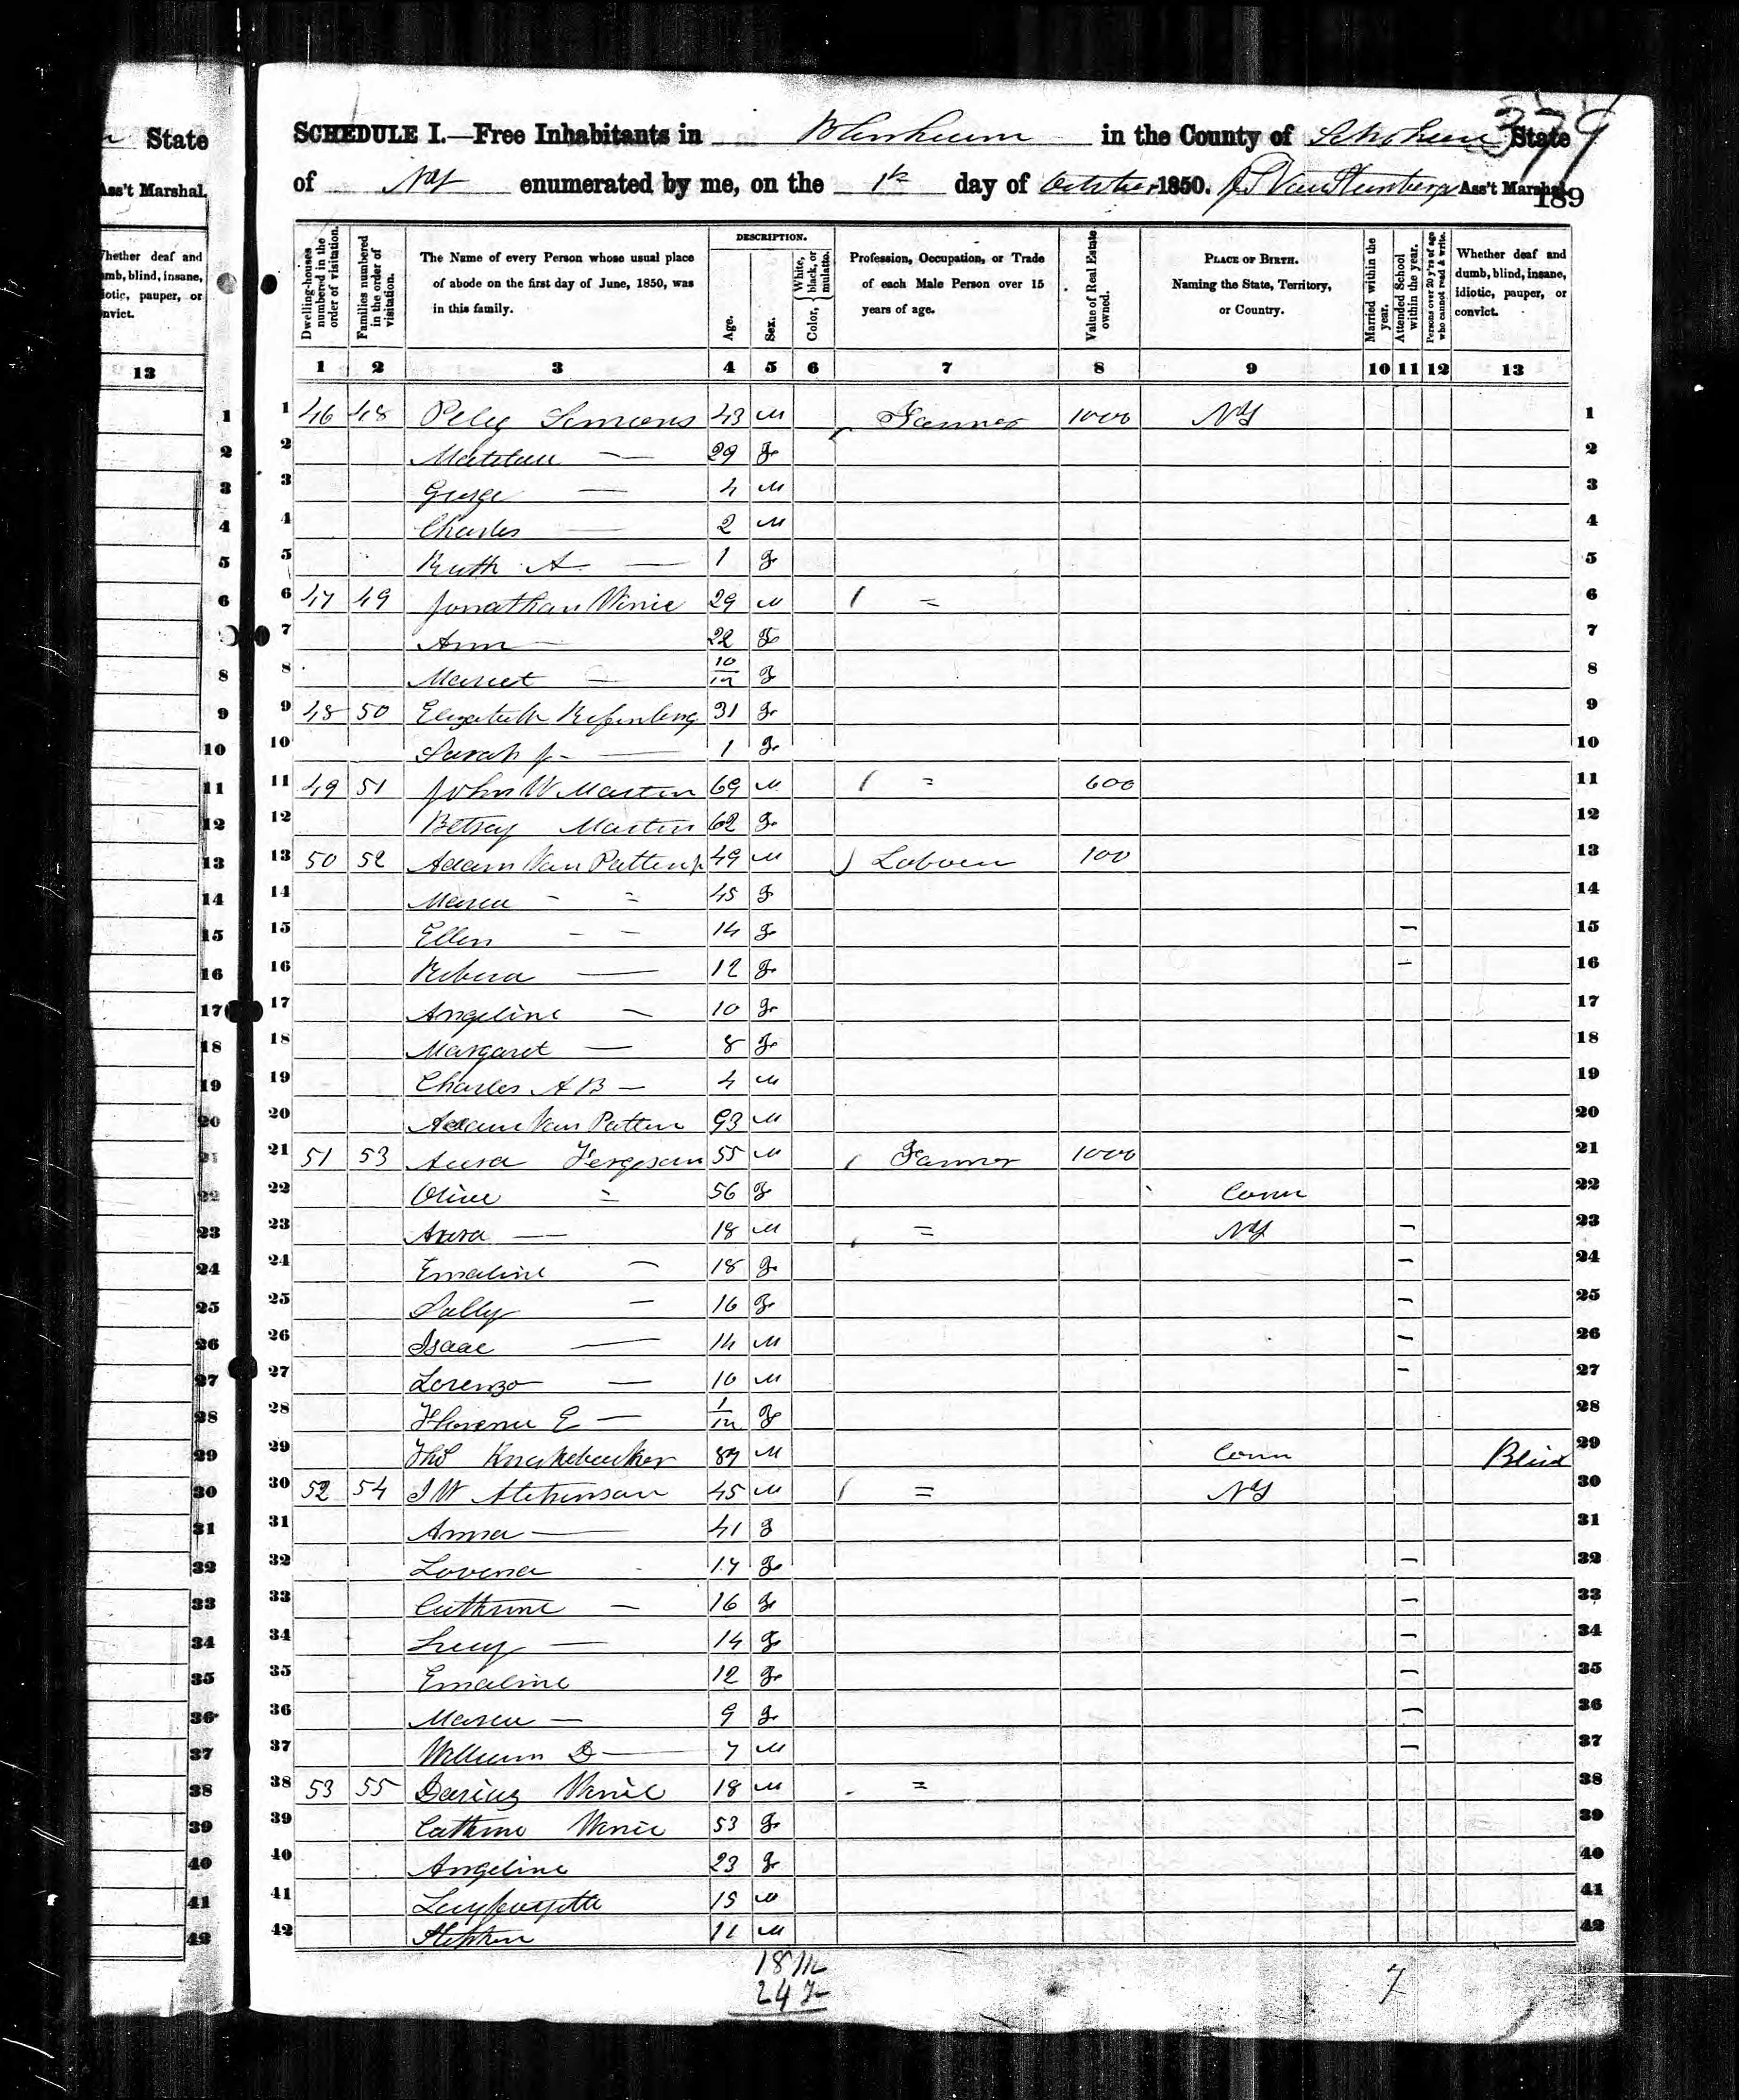 379
SCHEDULE I.—Free Inhabitants in Blenheim in the County of Schoharie State
of NY enumerated by me, on the 1st day of October 1850. Ass't Marshal.
189
State
Ass't Marshal.
Whether deaf and dumb, blind, insane, idiotic, pauper, or convict.
13
Dwelling-houses numbered in the order of visitation.
Families numbered in the order of visitation.
The Name of every Person whose usual place of abode on the first day of June, 1850, was in this family.
DESCRIPTION.
Age.
Sex.
Color, { White, black, or mulatto.
Profession, Occupation, or Trade of each Male Person over 15 years of age.
Value of Real Estate owned.
PLACE OF BIRTH. Naming the State, Territory, or Country.
Married within the year.
Attended School within the year.
Persons over 20 y'rs of age who cannot read & write.
Whether deaf and dumb, blind, insane, idiotic, pauper, or convict.
1 2 3 4 5 6 7 8 9 10 11 12 13
1 46 48 Peleg Simons 43 M Farmer 1000 NY 1
2 — 29 F 2
3 George — 4 M 3
4 Charles — 2 M 4
5 Ruth A — 1 F 5
6 47 49 Jonathan 29 M = 6
7 Ann — 22 F 7
8 — 10/12 F 8
9 48 50 Elizabeth 31 F 9
10 Sarah J — 1 F 10
11 49 51 John W Martin 69 M = 600 11
12 Betsey Martin 62 F 12
13 50 52 Adam Van Patten Jr 49 M Laborer 100 13
14 Maria - = 45 F 14
15 Ellen - - 14 F — 15
16 Rebecca — 12 F — 16
17 Angeline — 10 F 17
18 Margaret — 8 F 18
19 Charles A B — 4 M 19
20 Adam Van Patten 93 M 20
21 51 53 Fergeson 55 M Farmer 1000 21
22 Olive = 56 F Conn 22
23 — 18 M = NY — 23
24 Emaline — 18 F — 24
25 Sally — 16 F — 25
26 Isaac — 14 M — 26
27 Lorenzo — 10 M — 27
28 Florence E — 1/12 F 28
29 Thos Knickebacker 87 M Conn Blind 29
30 52 54 J W Atchinson 45 M = NY 30
31 Anna — 41 F 31
32 Lovena 17 F — 32
33 Cathrine — 16 F — 33
34 Lucy — 14 F — 34
35 Emaline 12 F — 35
36 Maria — 9 F — 36
37 William D — 7 M — 37
38 53 55 Darius 18 M = 38
39 Cathrine 53 F 39
40 Angeline 23 F 40
41 15 M 41
42 Stephen 11 M 42
18 M
24 F
7